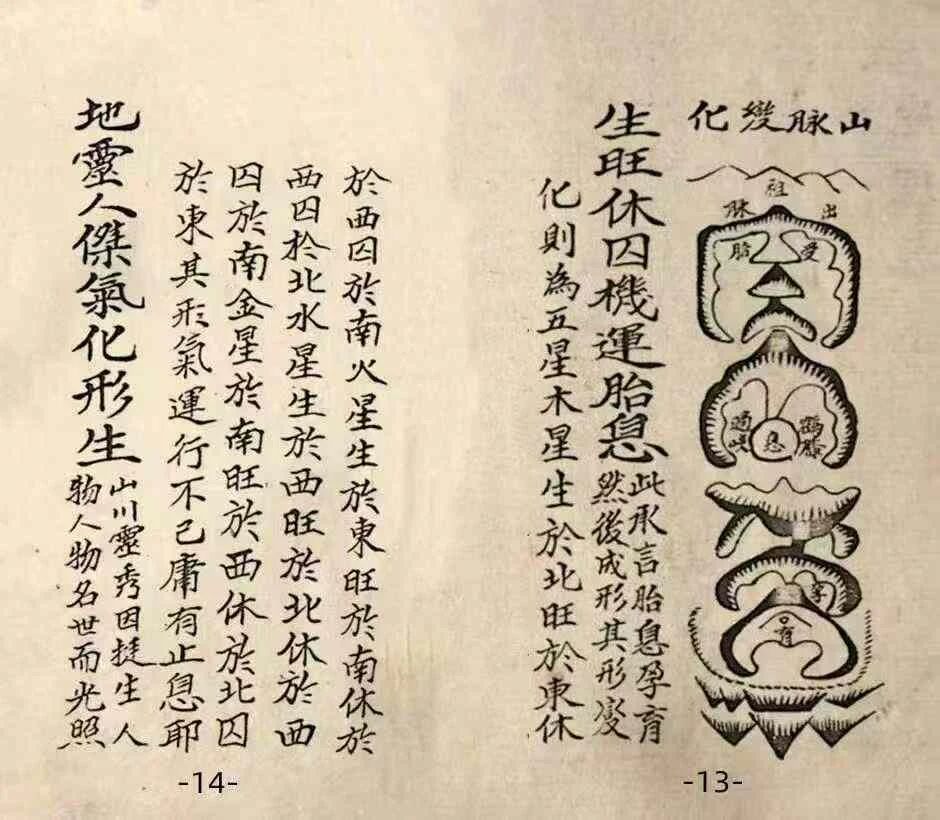 山脉變化
祖
出脉
受胎
鶴膝
息
過峽
孕
育
生旺休囚機運胎息
此承言胎息孕育
然後成形其形变
化則為五星木星生於北旺於東休
-13-
於西囚於南火星生於東旺於南休於
西囚於北水星生於西旺於北休於西
囚於南金星於南旺於西休於北囚
於東其形氣運行不己庸有止息耶
地靈人傑氣化形生
山川靈秀因挺生人
物人物名世而光照
-14-